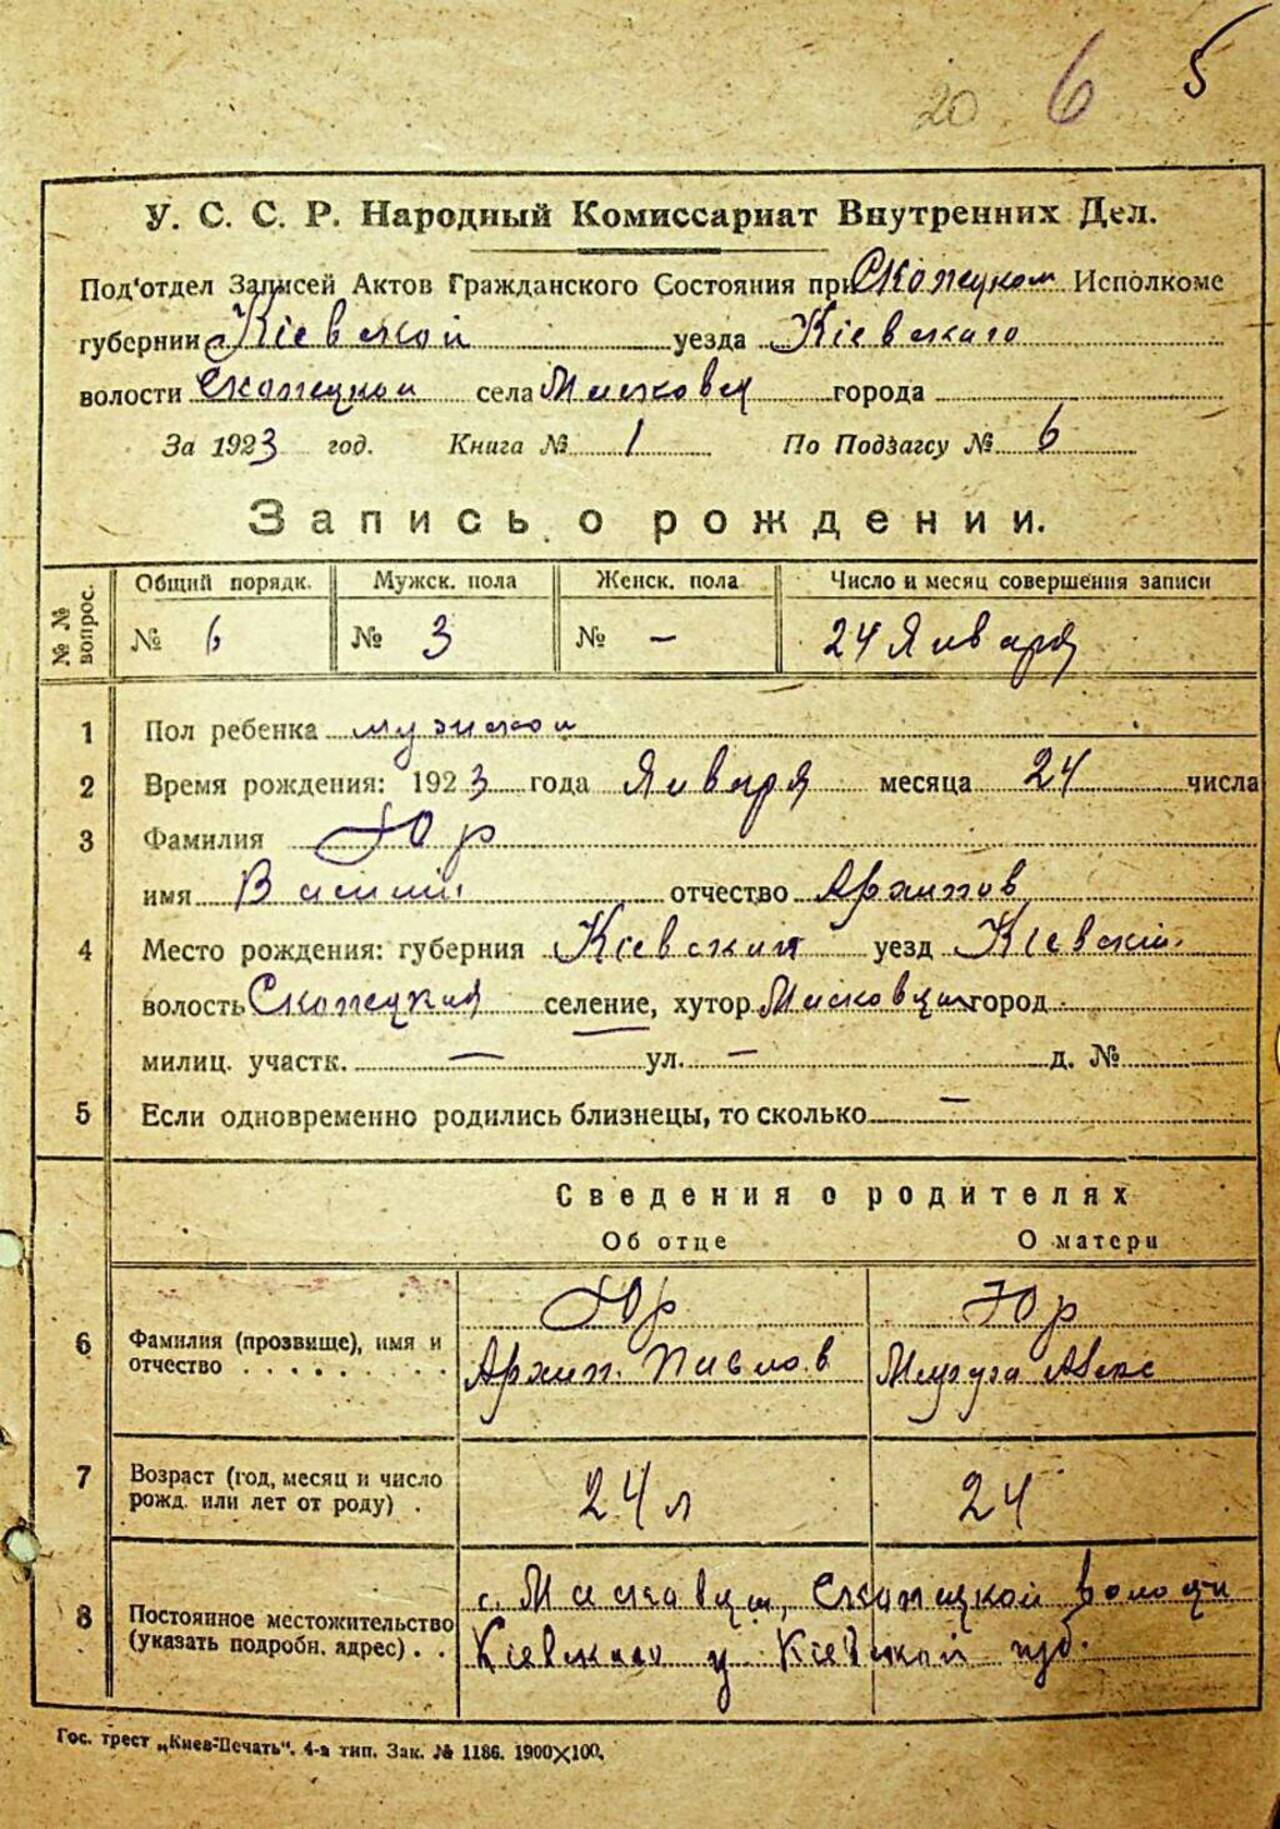 20 6 5
У. С. С. Р. Народный Комиссариат Внутренних Дел.
Под'отдел Записей Актов Гражданского Состояния при Скопецком Исполкоме
губернии Кіевской уезда Кіевскаго
волости Скопецкой села города
За 1923 год. Книга № 1 По Подзагсу № 6
Запись о рождении.
№№ вопрос. Общий порядк. Мужск. пола Женск. пола Число и месяц совершения записи
№ 6 № 3 № — 24 Января
1 Пол ребенка мужской
2 Время рождения: 1923 года Января месяца 24 числа
3 Фамилия Юр
имя отчество Архипов
4 Место рождения: губерния Кіевская уезд Кіевскій
волость Скопецкая селение, хутор город
милиц. участк. — ул. — д. №
5 Если одновременно родились близнецы, то сколько —
Сведения о родителях
Об отце О матери
Юр Юр
6 Фамилия (прозвище), имя и
отчество . . . . . . . . Архип. Павлов
7 Возраст (год, месяц и число
рожд. или лет от роду) . 24 л 24
с. Скопецкой волости
8 Постоянное местожительство
(указать подробн. адрес) . . Кіевскаго у Кіевской губ.
Гос. трест „Киев-Печать". 4-я тип. Зак. № 1186. 1900×100.